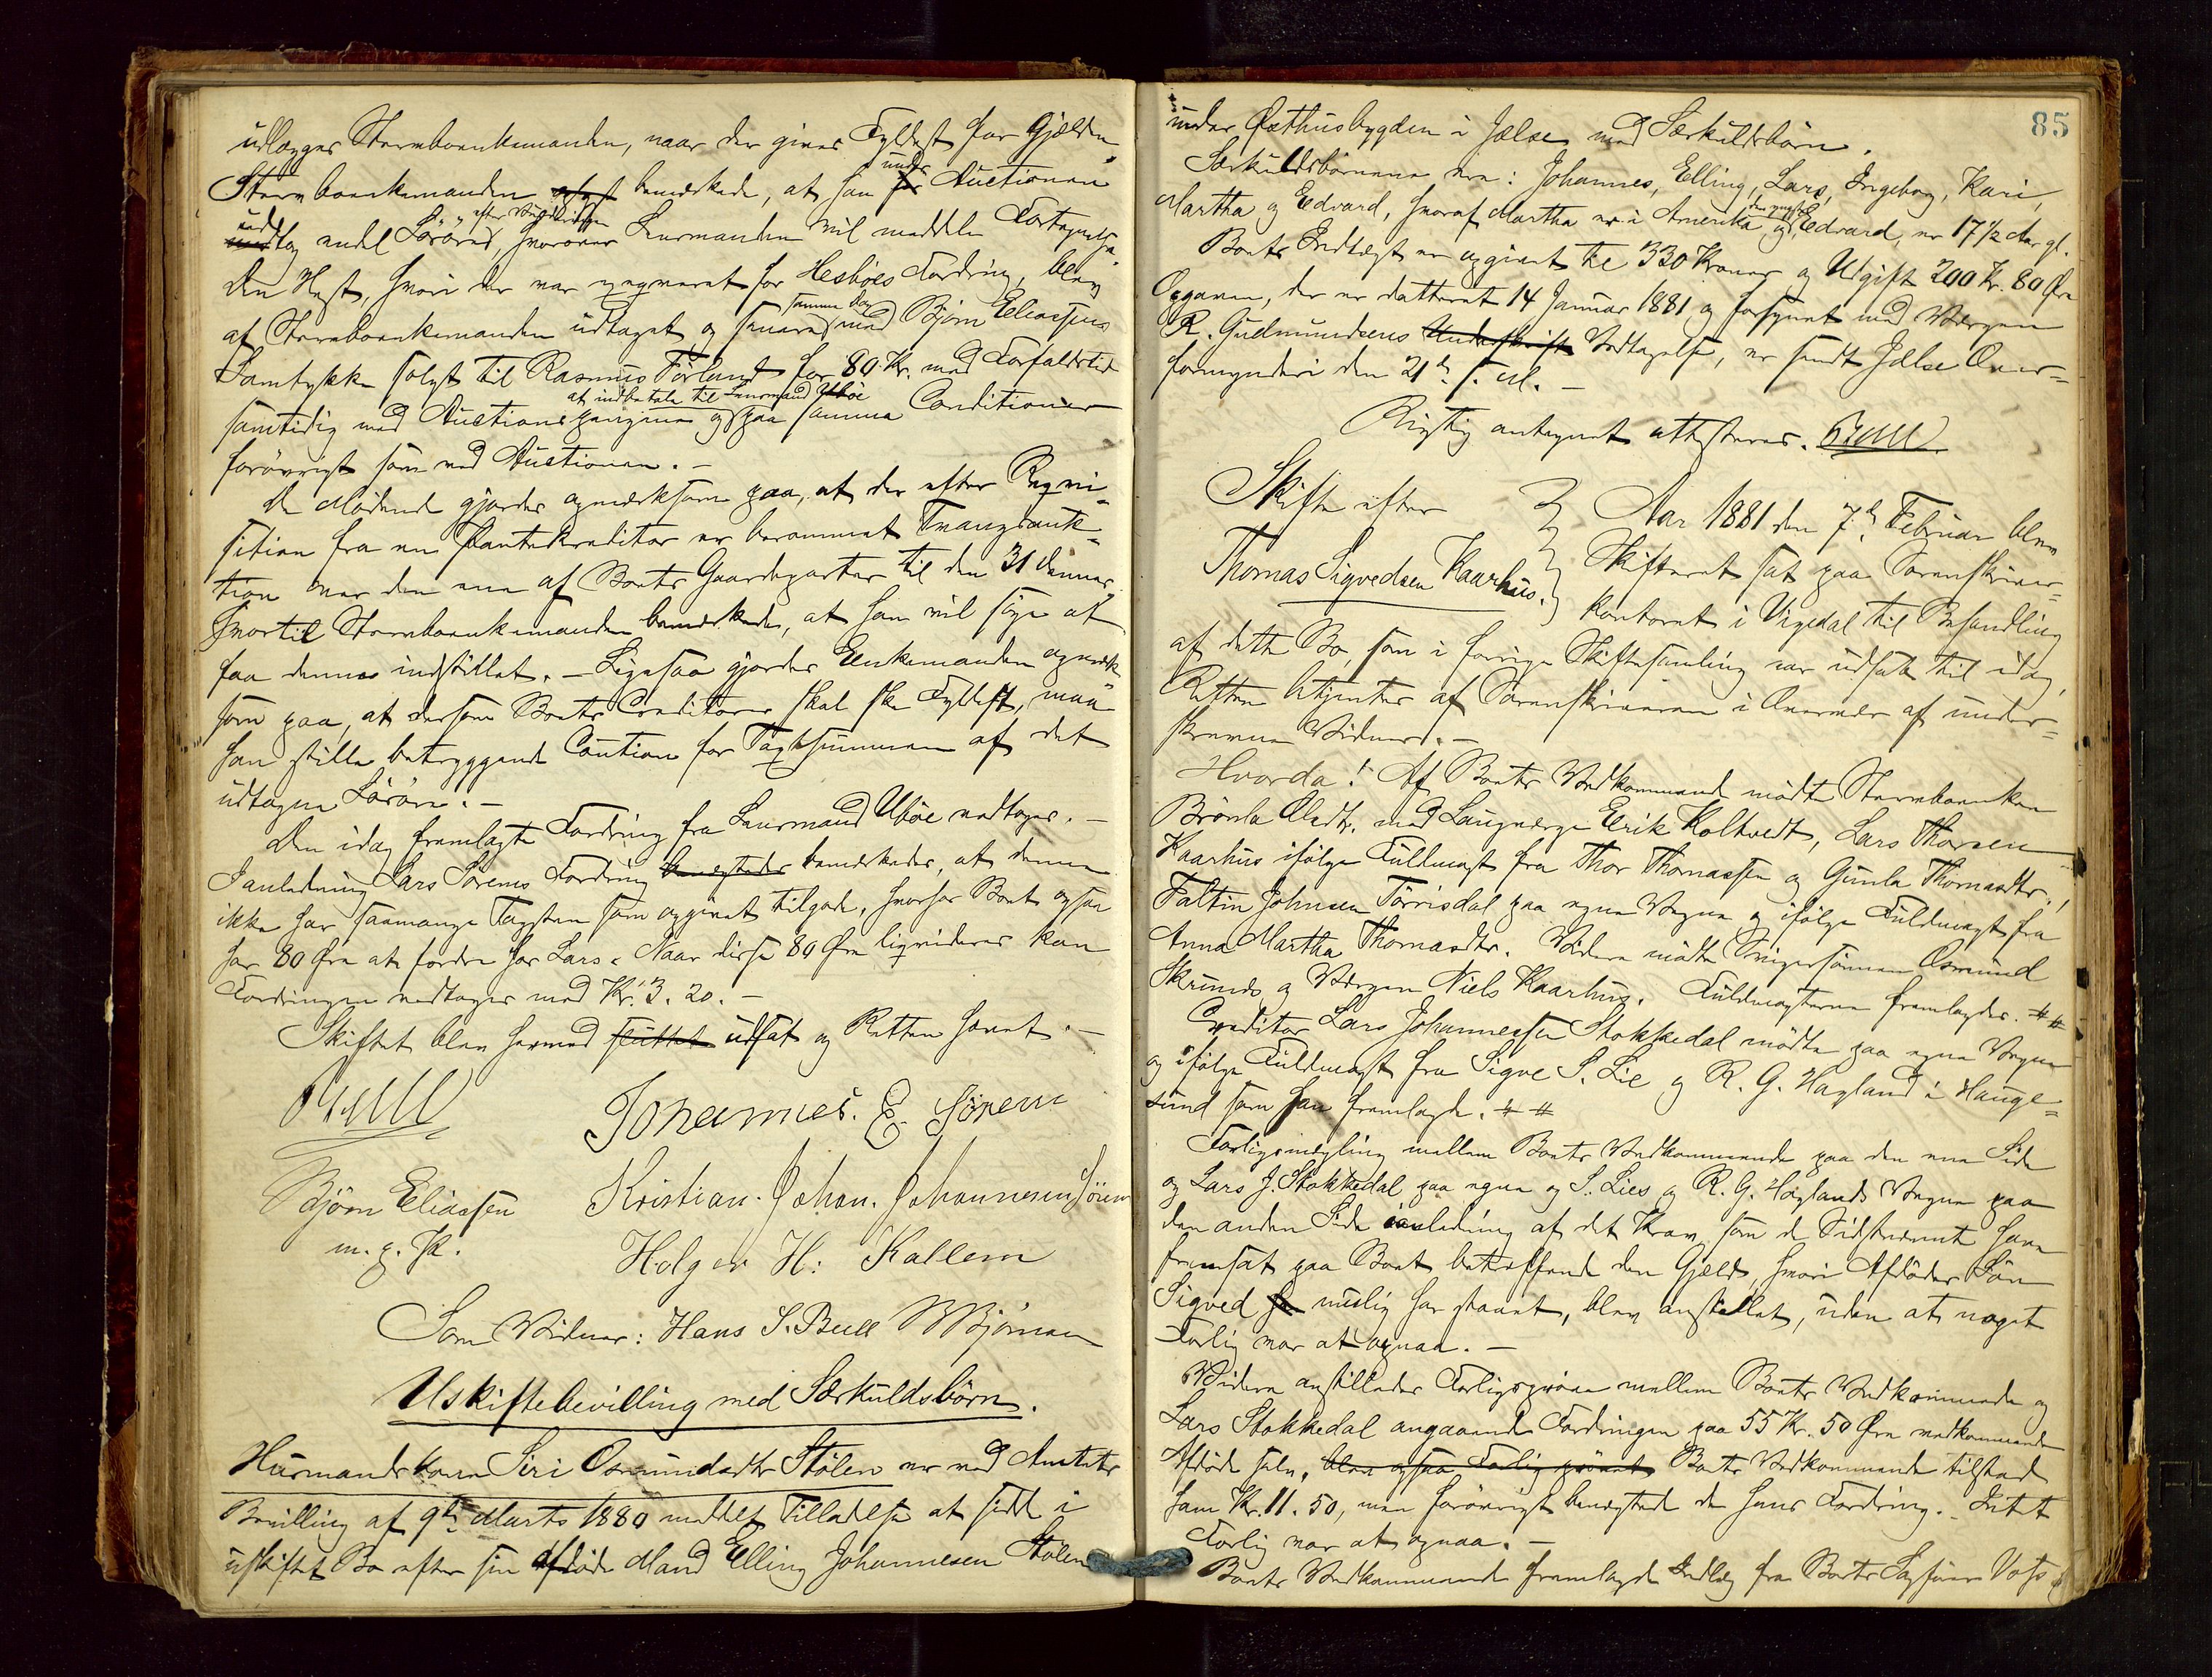 udlægges Stervboenkemanden, naar der gives Fyldest for Gjælden.
Stervboenkemanden bemærkede, at han under Auctionen
udtog endel Løsøre efter Vurderingen, hvorover Lensmanden vil meddele Fortegnelse.
Den Hest, hvori der var exequeret for Hesbøes Fordring, blev
af Stervboenkemanden udtaget og senere samme Dag med Bjørn Eliassens
Samtykke solgt til Rasmus Førland for 80 Kr. med Forfaldstid
samtidig med Auctionspengene at indbetale til Lensmand Ubøe og paa samme Conditioner
forøvrigt som ved Auctionen. —
De Mødende gjordes opmærksom paa, at der efter Reqvi-
sition fra en Pantekreditor er berammet Tvangsauk-
tion over den ene af Boets Gaardparter til den 31 dennes,
hvortil Stervboenkemanden bemærkede, at han vil søge at
faa denne indstillet. — Ligesaa gjordes Enkemanden opmærk
som paa, at dersom Boets Creditorer skal ske Fyldest, maa
han stille betryggende Caution for Taxtsummen af det
udtagne Løsøre. —
Den idag fremlagte Fordring fra Lensmand Ubøe vedtoges. —
I anledning Lars Sørems Fordring benegtedes bemærkedes, at denne
ikke har saamange Tagsten som opgivet tilgode, hvorfor Boet ogsaa
har 80 Øre at fordre hos Lars. Naar disse 80 Øre liqvideres kan
Fordringen vedtages med Kr. 3. 20. —
Skiftet blev hermed sluttet udsat og Retten hævet. —
Johannes. E. Sørem
Bjørn Eliassen Kristian. Johan. Johannesen Sørem
m. p. P. Holger H: Kallem
Som Vidner: Hans S. Bull B Bjørnsen
Uskiftebevilling med Særkuldsbørn.
Husmandskone Siri Osmundsdtr Stølen er ved Amtets
Bevilling af 9de Marts 1880 meddelt Tilladelse at sidde i
uskiftet Bo efter sin afdøde Mand Elling Johannesen Stølen
85
under Østhusbygden i Jelse med Særkuldsbørn.
Særkuldsbørnene ere: Johannes, Elling, Lars, Ingeborg, Kari,
Martha og Edvard, hvoraf Martha er i Amerika og den yngste Edvard, er 17 1/2 Aar gl.
Boets Indtægt er opgivet til 330 Kroner og Udgift 200 Kr. 80 Øre
Opgaven, der er datteret 14 Januar 1881 og forsynet med Værgen
R. Gudmundsens Underskrift Vedtagelse, er sendt Jelse Over-
formynderi den 21de s. M. —
Rigtig antegnet attesteres.
Skifte efter Aar 1881 den 7de Februar blev
Thomas Sigvedsen Kaarhus. Skifteret sat paa Sorenskriver-
kontoret i Vigedal til Behandling
af dette Bo, som i forrige Skiftesamling var udsat til idag,
Retten betjentes af Sorenskriveren i Overvær af under-
skrevne Vidner. —
Hvorda! Af Boets Vedkommende mødte Stervboenken
Brønla Olsdtr. med Laugværge Erik Koltvedt, Lars Thorsen
Kaarhus ifølge Fuldmagt fra Thor Thomassen og Gunla Thomasdtr.,
Faltin Johnsen Tørrisdal paa egne Vegne og ifølge Fuldmagt fra
Anna Martha Thomasdtr. Videre mødte Svigersønnen Osmund
Skrunds og Værgen Niels Kaarhus. Fuldmagterne fremlagdes. # #
Creditor Lars Johannessen Stokkedal mødte paa egne Vegne
og ifølge Fuldmagt fra Sigve S. Lie og R. G. Hagland i Hauge-
sund som han fremlagde. # #
Forligsmægling mellem Boets Vedkommende paa den ene Side
og Lars J. Stokkedal paa egne og S. Lies og R. G. Haglands Vegne paa
den anden Side i anledning af det Krav som de Sidstnævnte have
fremsat paa Boet betræffende den Gjæld, hvori Afdødes Søn
Sigved har muelig har staaet, blev anstillet, uden at noget
Forlig var at opnaa. —
Videre anstilledes Forligsprøve mellem Boets Vedkommende og
Lars Stokkedal angaaende Fordringen paa 55 Kr. 50 Øre vedkommende
Afdøde selv, blev ogsaa Forlig prøvet Boets Vedkommende tilstod
ham Kr. 11. 50, men forøvrigt benegtede de hans Fordring. Intet
Forlig var at opnaa. —
Boets Vedkommende fremlagde Indlæg fra Boets Sagfører Voss